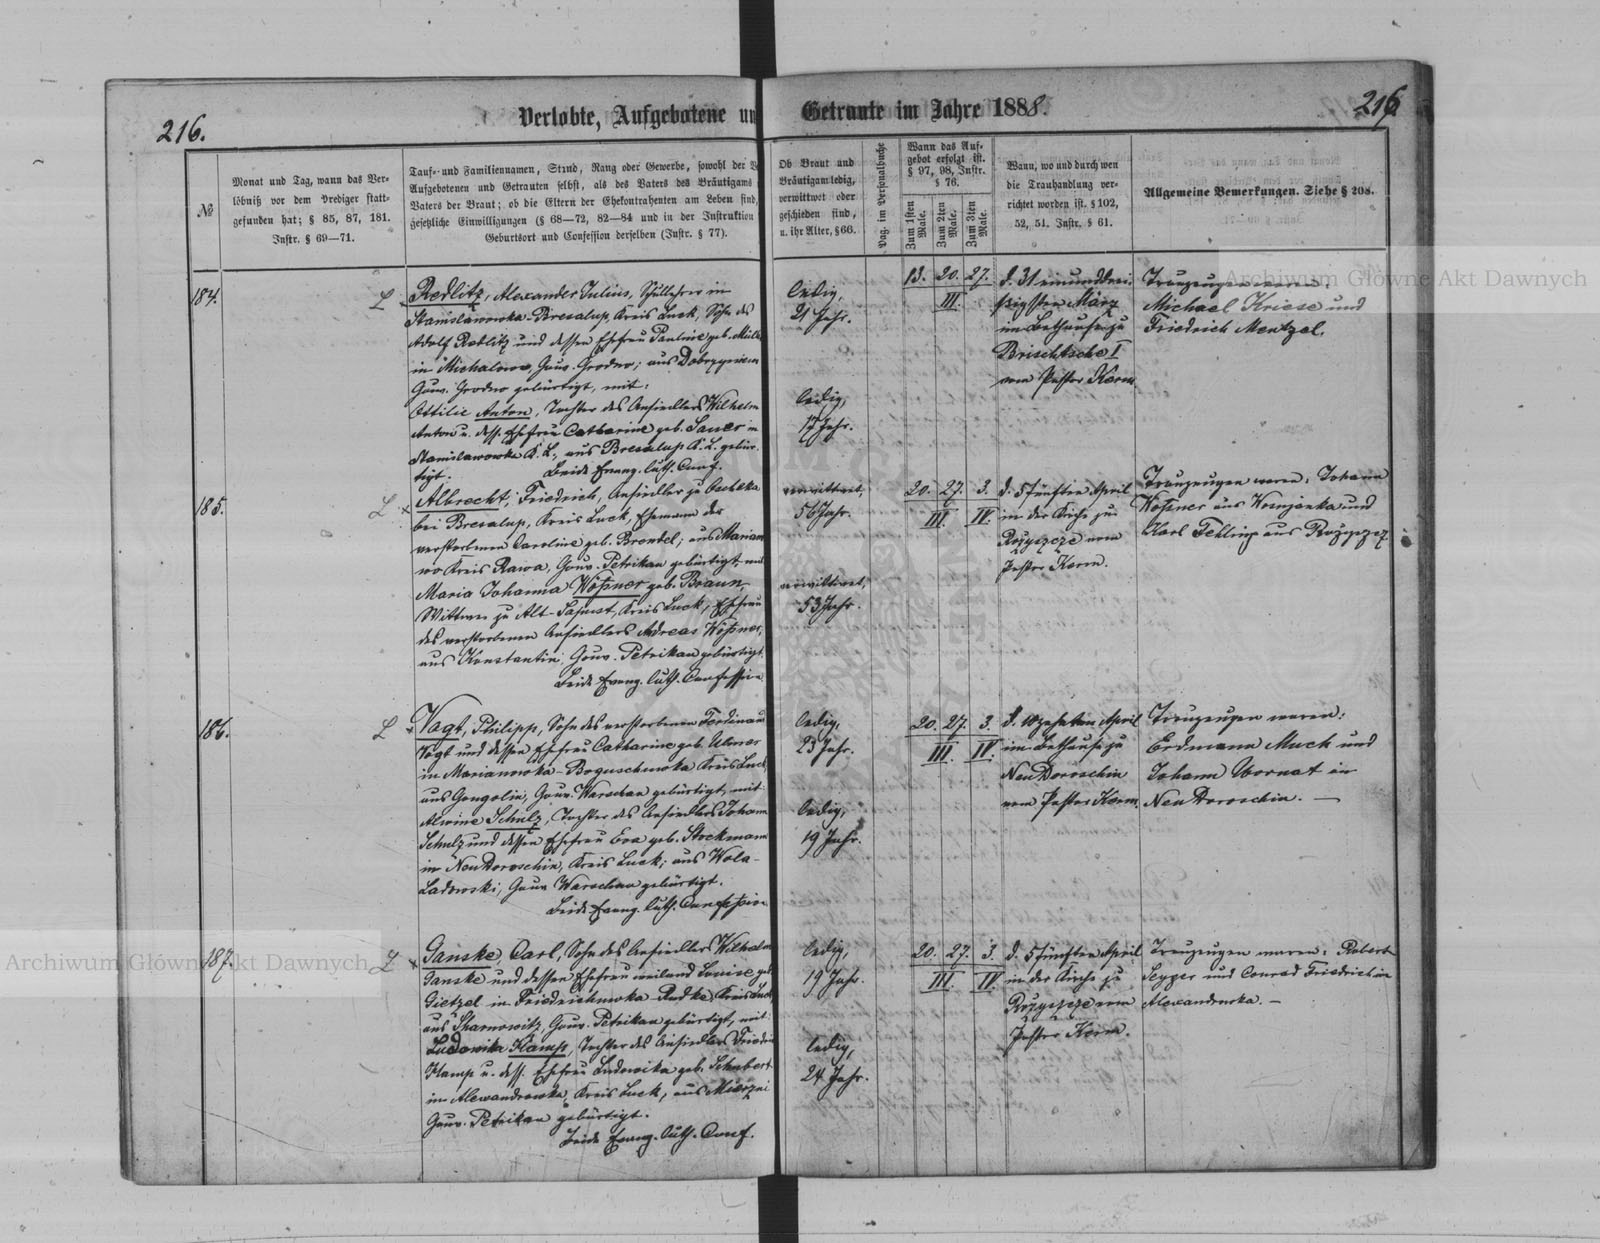 216.
Verlobte, Aufgebotene un
Getraute im Jahre 1888.
216
№
Monat und Tag, wann das Ver-
löbniß vor dem Prediger statt-
gefunden hat; § 85, 87, 181.
Instr. § 69—71.
Tauf- und Familiennamen, Stand, Rang oder Gewerbe, sowohl der V
Aufgebotenen und Getrauten selbst, als des Vaters des Bräutigams
Vaters der Braut; ob die Eltern der Ehekontrahenten am Leben sind,
gesetzliche Einwilligungen (§ 68—72, 82—84 und in der Instruktion
Geburtsort und Confession derselben (Instr. § 77).
Ob Braut und
Bräutigam ledig,
verwittwet oder
geschieden sind,
u. ihr Alter, § 66.
Pag. im Personalbuche
Wann das Auf-
gebot erfolgt ist.
§ 97, 98, Instr.
§ 76.
Zum 1sten Male.
Zum 2ten Male.
Zum 3ten Male.
Wann, wo und durch wen
die Trauhandlung ver-
richtet worden ist. § 102,
52, 51. Instr. § 61.
Allgemeine Bemerkungen. Siehe § 208.
184.
L
Redlitz, Alexander Julius, Schullehrer in
Stanislawowka-Bresalup, Kreis Luck, Sohn des
Adolf Redlitz und dessen Ehefrau Pauline geb. Müll
in Michalowo, Gouv. Grodno; aus
Gouv. Grodno gebürtigt, mit:
Ottilie Anton, Tochter des Ansiedlers Wilhelm
Anton u. dess. Ehefrau Catharine geb. Sauer in
Stanislawowka K. L., aus Bresalup K. L. gebür-
tigt.
Beide Evang. luth. Conf.
ledig,
21 Jahr.
ledig,
17 Jahr.
13. 20. 27.
III.
d. 31 einunddrei-
ßigsten März
im Bethause zu
Brischtsche I
vom Pastor Kerm.
Trauzeugen waren:
Michael Kriese und
Friedrich Mentzel.
185.
L
Albrecht, Friedrich, Ansiedler zu
bei Bresalup, Kreis Luck, Ehemann der
verstorbenen Caroline geb. Brendel; aus Mariam
wo Kreis Rawa, Gouv. Petrikau gebürtigt, mit
Maria Johanna Wößner geb. Braun
Wittwe zu Alt-Kreis Luck, Ehefrau
des verstorbenen Ansiedlers Andreas Wößner,
aus Konstantin, Gouv. Petrikau gebürtigt.
Beide Evang. luth. Confession
verwittwet,
56 Jahr.
verwittwet,
53 Jahr.
20. 27. 3.
III. IV.
d. 5 fünften April
in der Kirche zu
Rożyszcze vom
Pastor Kerm.
Trauzeugen waren: Johann
Wößner aus und
Karl aus
186.
L
Vogt, Philipp, Sohn des verstorbenen Ferdinand
Vogt und dessen Ehefrau Catharine geb. Ulmer
in Marianowka-Boguschowka Kreis Luck
aus Gongolin, Gouv. Warschau gebürtigt, mit
Alwine Schulz, Tochter des Ansiedlers Johann
Schulz und dessen Ehefrau Eva geb. Stockmann
in Neu Doroschin, Kreis Luck; aus Wola-
Ladowski, Gouv. Warschau gebürtigt.
Beide Evang. luth. Confession
ledig,
23 Jahr.
ledig,
19 Jahr.
20. 27. 3.
III. IV.
d. 10 zehnten April
im Bethause zu
Neu Doroschin
vom Pastor Kerm.
Trauzeugen waren:
Erdmann Much und
Johann Wornat in
Neu Doroschin. —
187.
L
Ganske, Carl, Sohn des Ansiedlers Wilhelm
Ganske und dessen Ehefrau weiland Louise geb
Gietzel in Friedrichowka-Rudka, Kreis Luck,
aus Gouv. Petrikau gebürtigt, mit
Ludowika Klamp, Tochter des Ansiedlers Friedri
Klamp u. dess. Ehefrau Ludowika geb. Schubert
in Alexandrowka, Kreis Luck, aus
Gouv. Petrikau gebürtigt.
Beide Evang. luth. Conf.
ledig,
19 Jahr.
ledig,
24 Jahr.
20. 27. 3.
III. IV.
d. 5 fünften April
in der Kirche zu
Rożyszcze vom
Pastor Kerm.
Trauzeugen waren: Robert
und Conrad Friedrich in
Alexandrowka. —
Archiwum Główne Akt Dawnych
Archiwum Główne Akt Dawnych